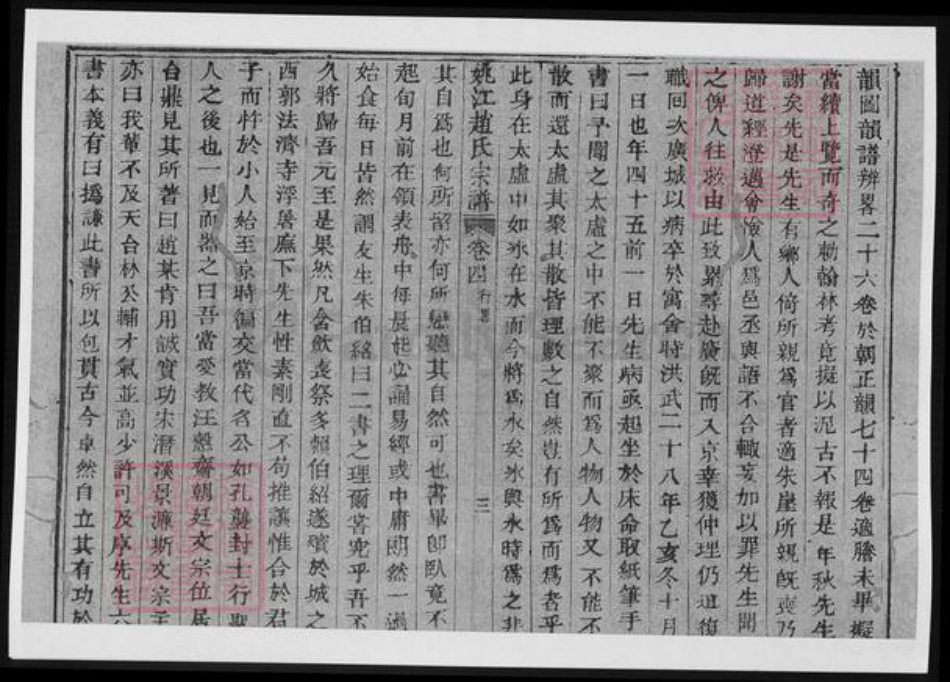 韻圖韻譜辨畧二十六卷於朝正韻七十四卷適謄未畢擬
當續上覽而奇之勅翰林考竟擬以泥古不報是年秋先生
謝矣先是先生有鄉人倚所親爲官者適朱崖所親旣喪乃
歸道經澄邁會儉人爲邑丞與語不合輙妄加以罪先生聞
之俾人往救由此致累尋赴廣旣而入京幸獲伸理仍道復
職回次廣城以病卒於寓舍時洪武二十八年乙亥冬十月
一日也年四十五前一日先生病亟起坐於床命取紙筆手
書曰予聞之太虛之中不能不聚而爲人物人物又不能不
散而還太虛其聚其散皆理數之自然豈有所爲而爲者乎
此身在太虛中如氷在水而今將爲水矣氷與水時爲之非
姚江趙氏宗譜 卷四 行畧 三
其自爲也何所留亦何所戀聽其自然可也書畢卽臥竟不
起旬月前在領表舟中每晨起必誦易經或中庸朗然一過
始食每日皆然謂友生朱伯紹曰二書之理爾當究乎吾不
久將歸吾元至是果然凡含飲喪祭多賴伯紹遂殯於城之
西郭法濟寺浮屠廡下先生性素剛直不苟推讓惟合於君
子而忤於小人始至京時徧交當代名公如孔襲封士行聖
人之後也一見而器之曰吾當愛敎汪懇齋朝廷文宗位居
台鼎見其所著曰趙某肯用誠實功宋潛溪景濂斯文宗主
亦曰我輩不及天台林公輔才氣並高少許可及序先生六
書本義有曰撝謙此書所以包貫古今卓然自立其有功於